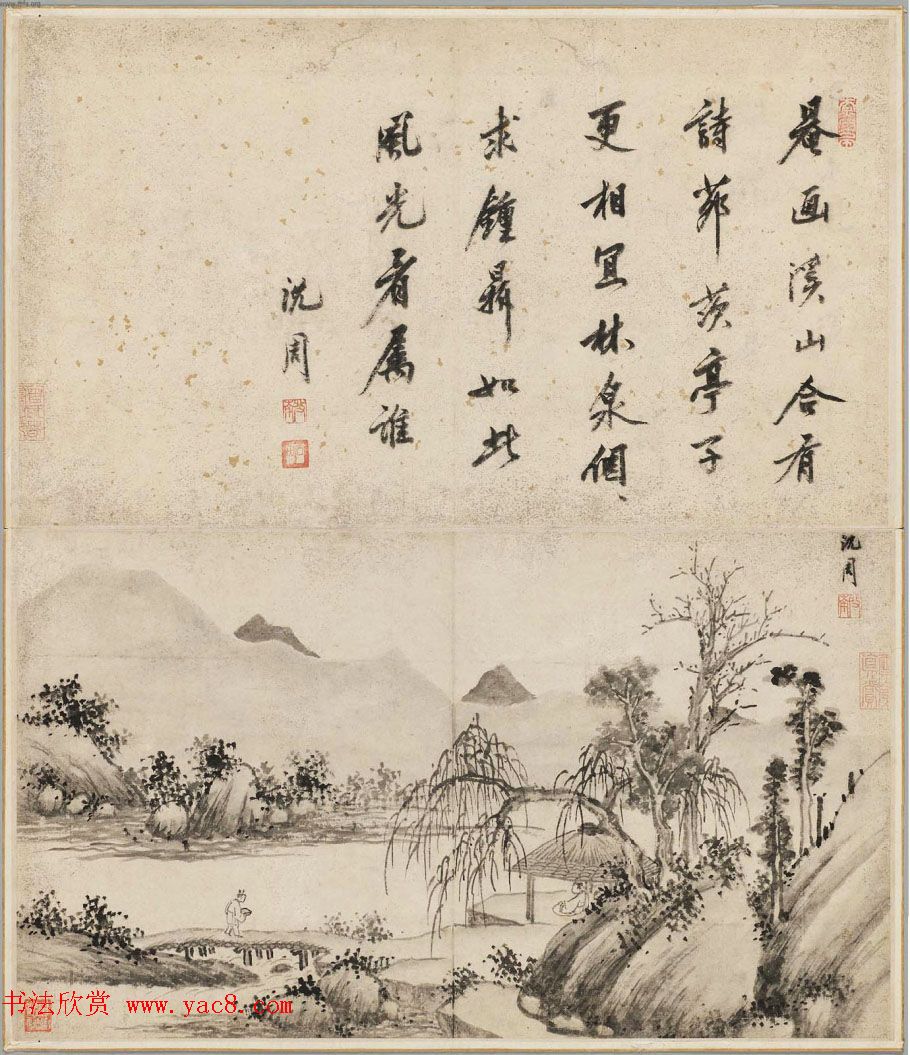 罨画溪山合有
詩茆茨亭子
更相宜林泉個、
求鍾鼎如此
風光看属誰
沈周
沈周
书法欣赏 www.yac8.com